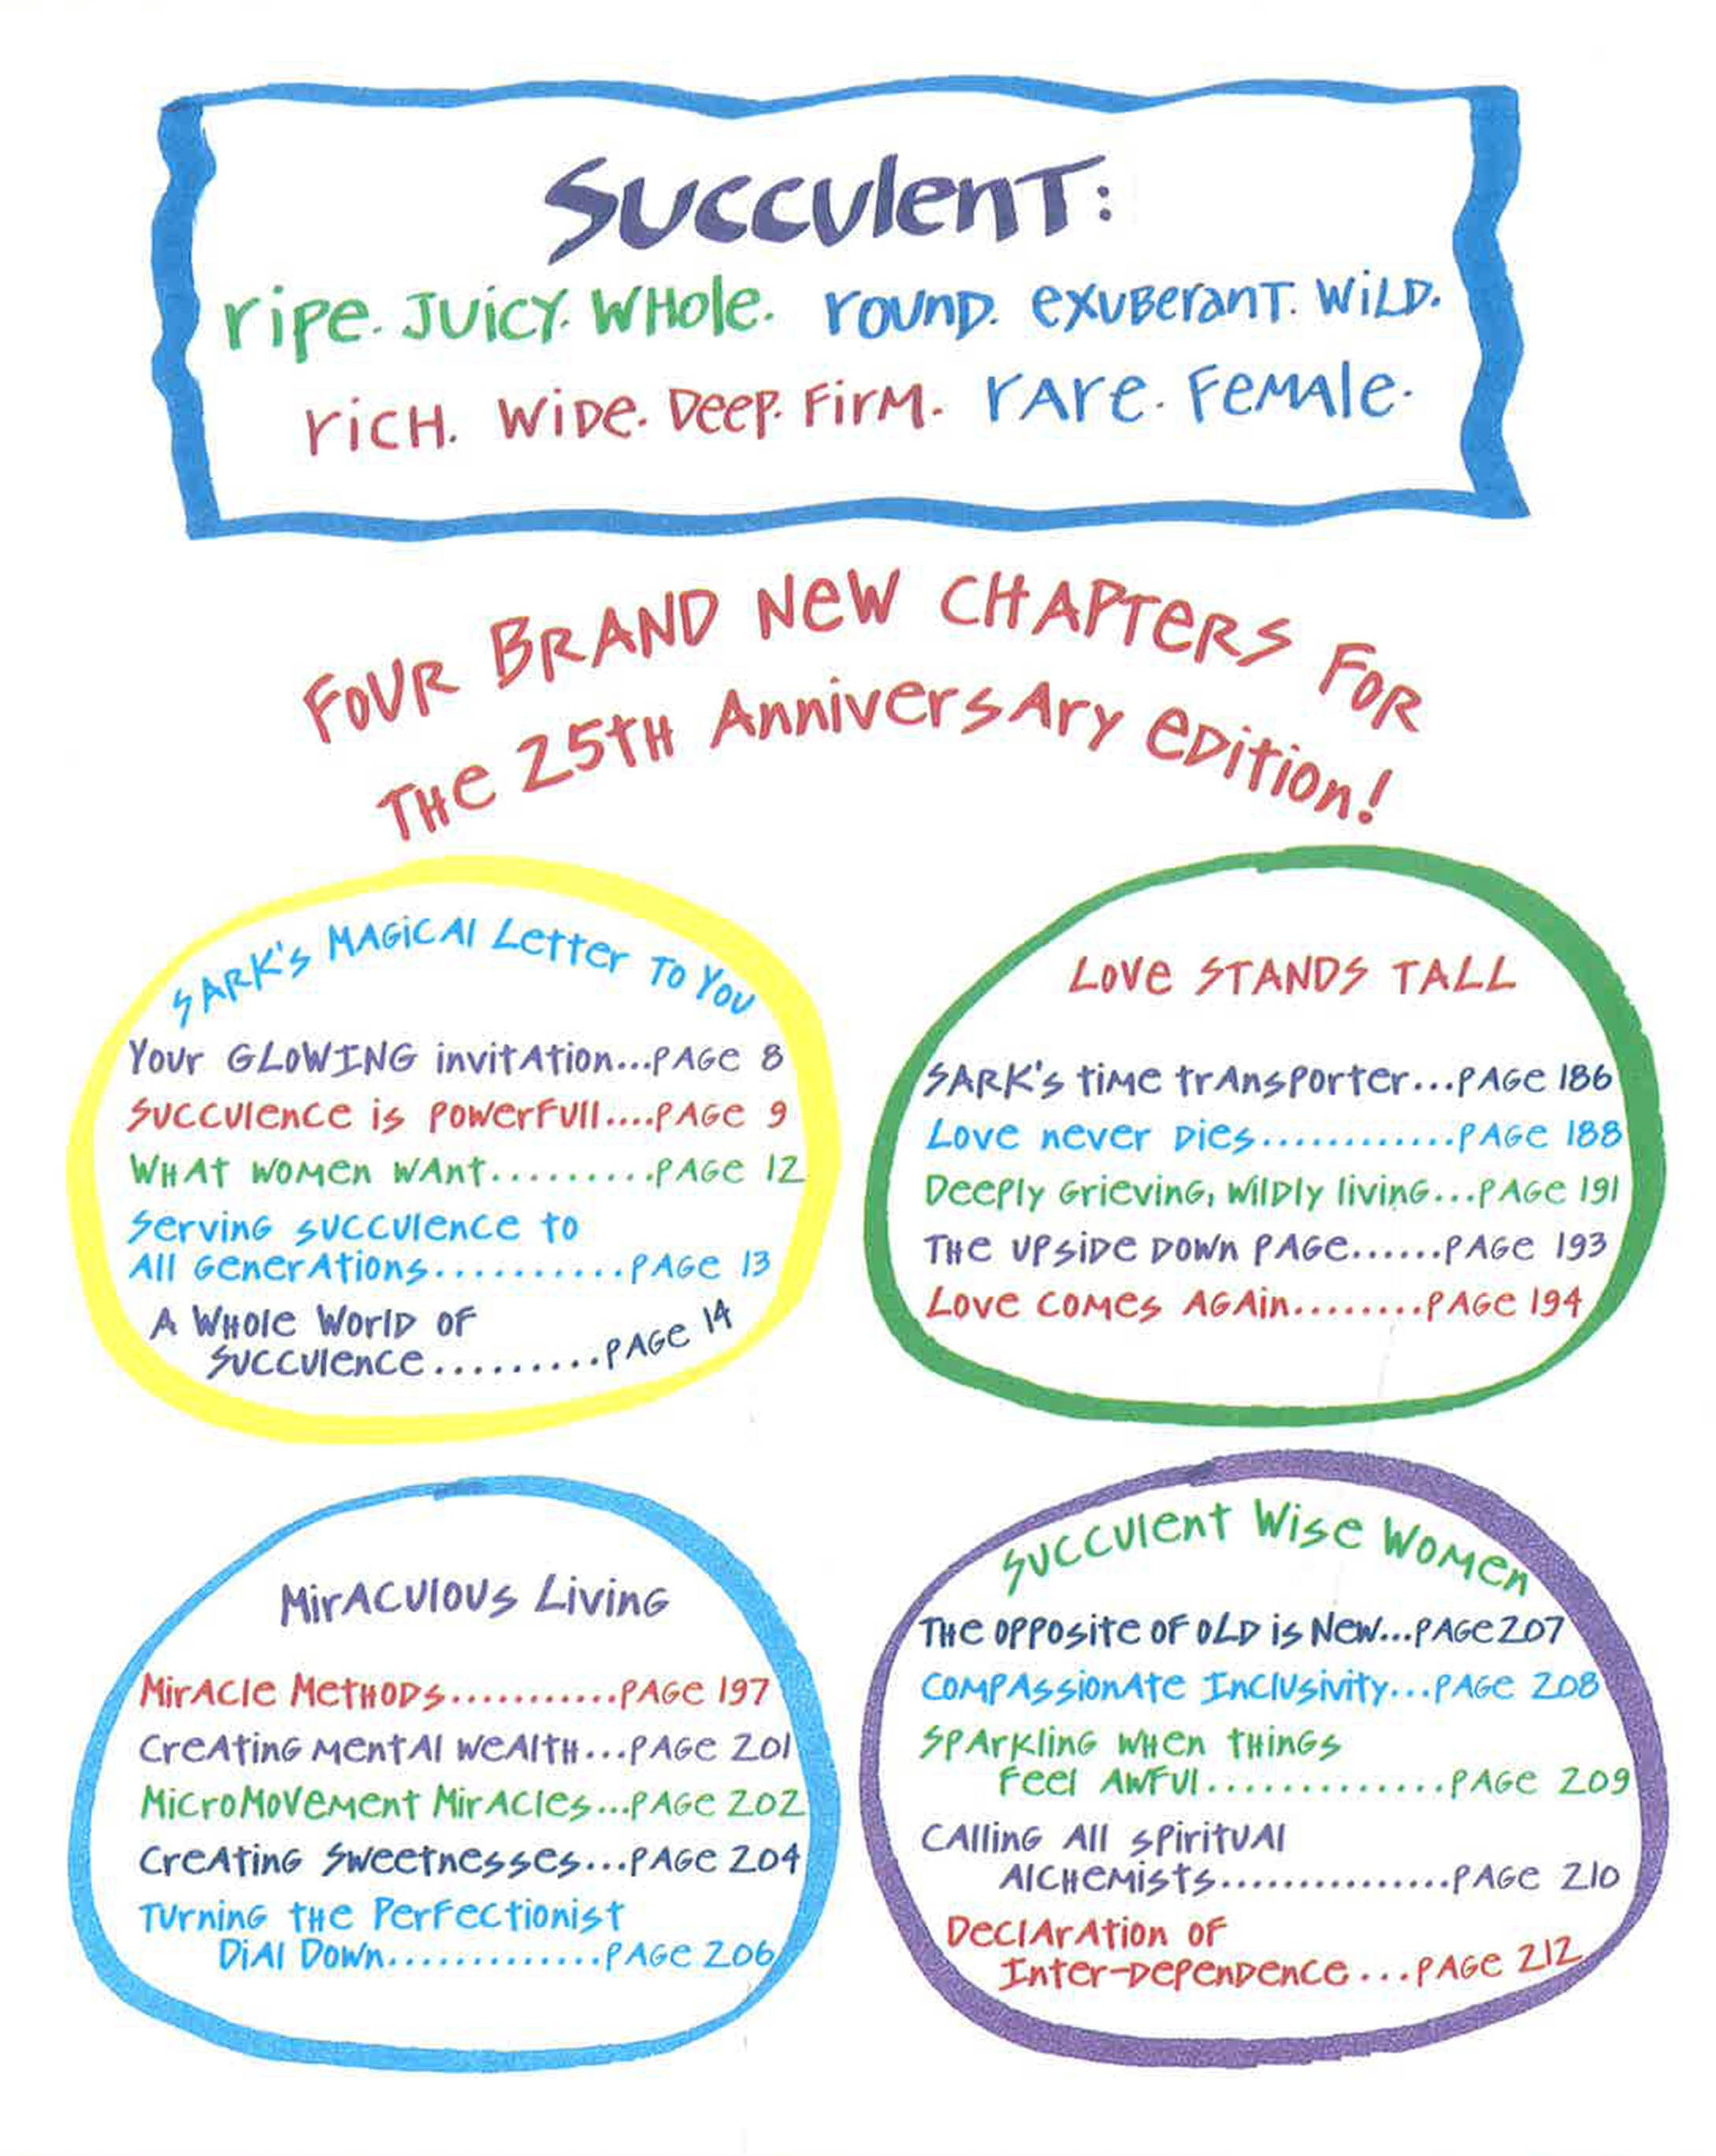 Succulent:
ripe. Juicy. Whole. round. exuberant. Wild.
rich. Wide. Deep. Firm. rare. Female.
Four Brand New Chapters For
The 25th Anniversary Edition!
SARK's Magical Letter To You
Your GLOWING invitation...page 8
Succulence is powerfull....page 9
What women want.........page 12
Serving succulence to
All Generations..........page 13
A Whole World of
Succulence.........page 14
Love STANDS TALL
SARK's time transporter...page 186
Love never dies............page 188
Deeply Grieving, Wildly living...page 191
The upside down page......page 193
Love comes again........page 194
Miraculous Living
Miracle Methods...........page 197
Creating mental wealth...page 201
MicroMovement Miracles...page 202
Creating Sweetnesses...page 204
Turning the Perfectionist
Dial Down.............page 206
Succulent Wise Women
The opposite of old is New...page 207
Compassionate Inclusivity...page 208
Sparkling when things
feel awful.............page 209
Calling All spiritual
Alchemists...............page 210
Declaration of
Inter-Dependence...page 212